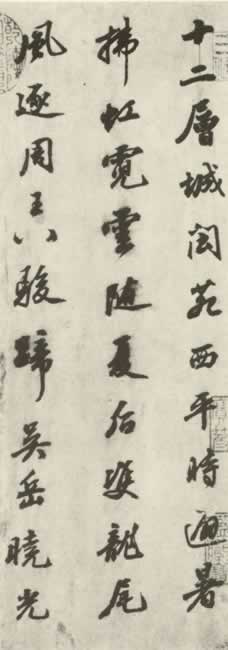 十二層城閬苑西平時避暑
拂虹霓雲隨夏后雙龍尾
風逐周王八駿蹄吳岳曉光